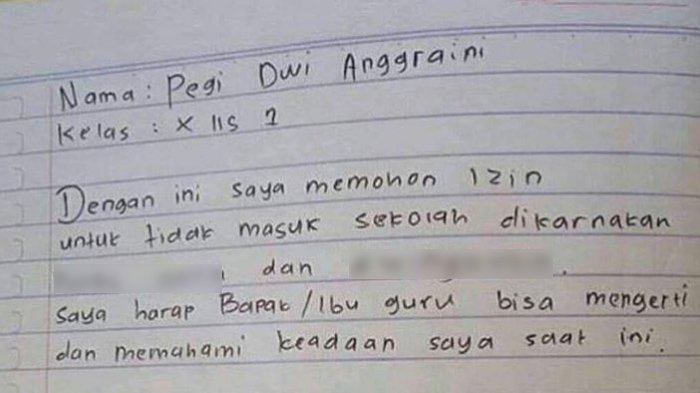 Nama : Pegi Dwi Anggraini
Kelas : X IIS 1
Dengan ini saya memohon Izin
untuk tidak masuk sekolah dikarnakan
dan .
saya harap Bapak / Ibu guru bisa mengerti
dan memahami keadaan saya saat ini.